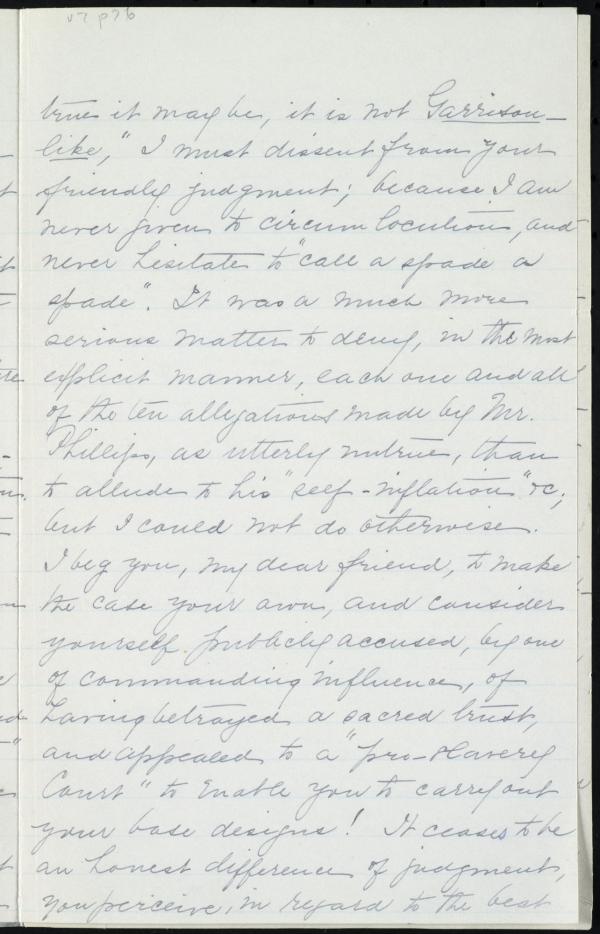 v7 p76
true it may be, it is not Garrison-
like," I must dissent from your
friendly judgment; because I am
never given to circumlocution, and
never hesitate to "call a spade a
spade". It was a much more
serious matter to deny, in the most
explicit manner, each one and all
of the ten allegations made by Mr.
Phillips, as utterly untrue, than
to allude to his "self-inflation" &c;
but I could not do otherwise.
I beg you, my dear friend, to make
the case your own, and consider
yourself publicly accused, by one
of commanding influence, of
having betrayed a sacred trust,
and appealed to a "pro-slavery
Court" to enable you to carry out
your base designs! It ceases to be
an honest difference of judgment,
you perceive, in regard to the best